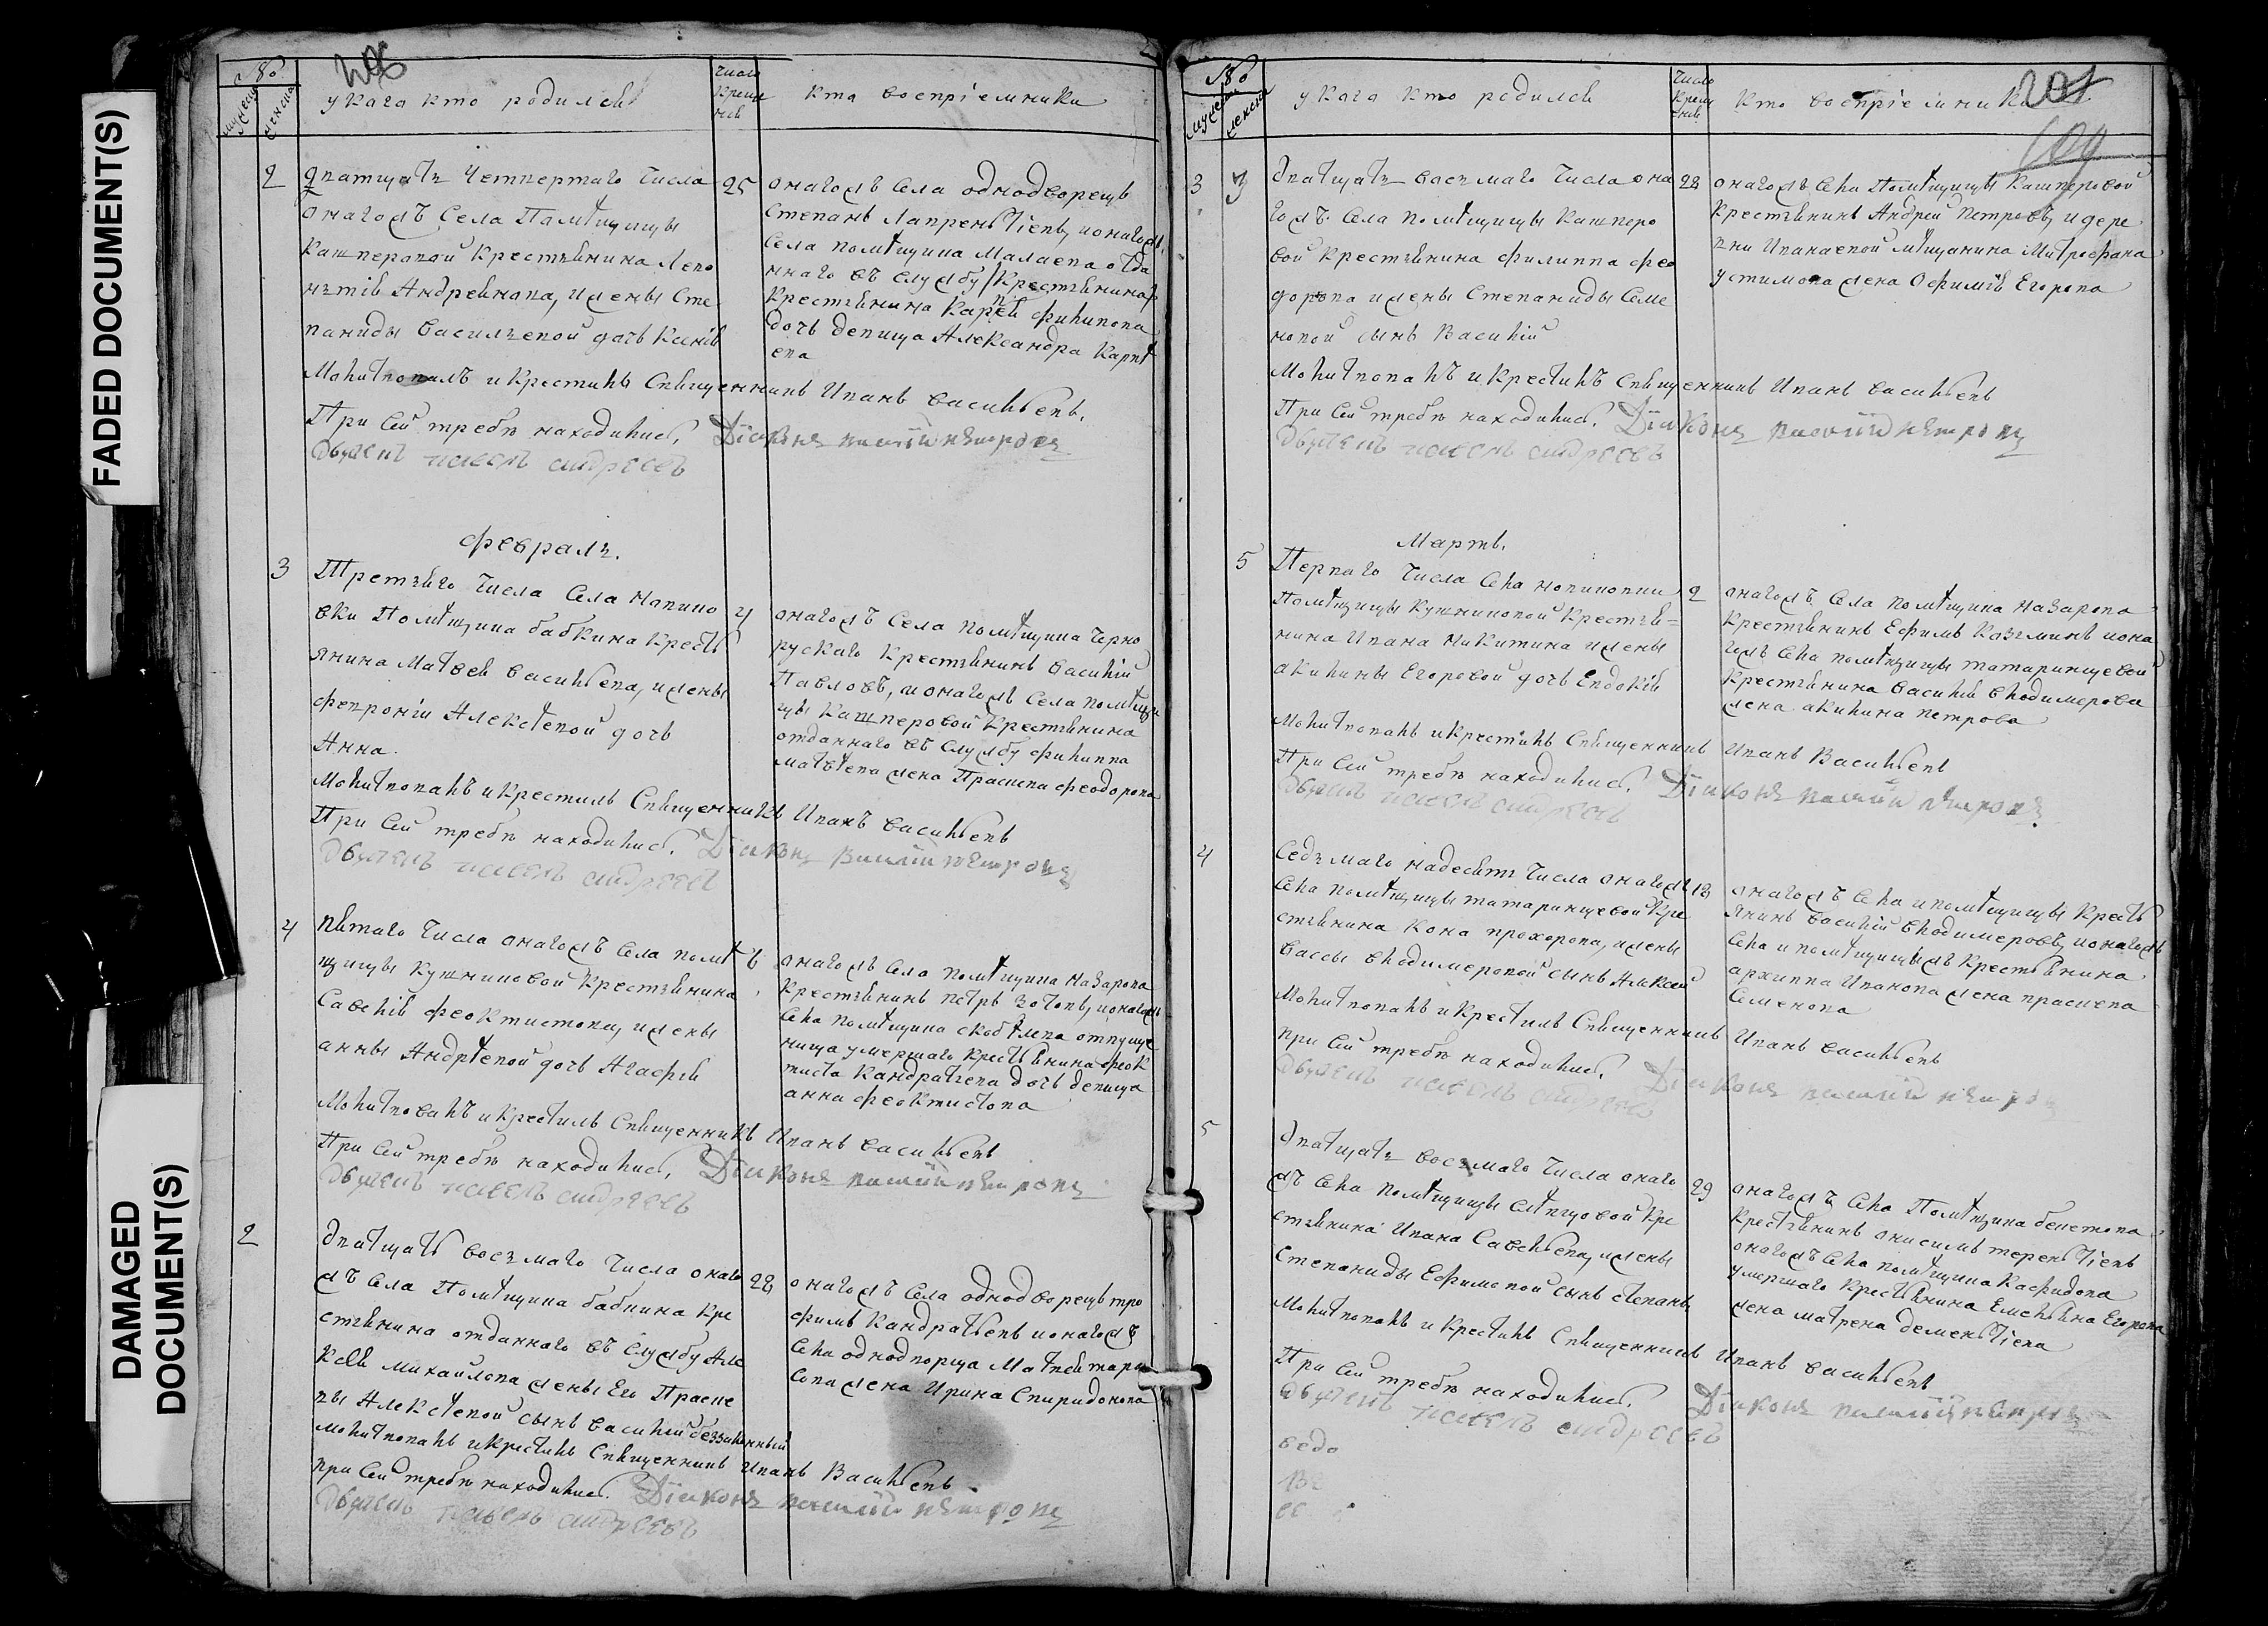 FADED DOCUMENT(S)
DAMAGED
DOCUMENT(S)
№
мужеска
женска
у кого кто родился
число
креще
нія
кто воспріемники
2 дватцать четвертаго числа 25
оногожъ села Памѣщицы
кашперовой крестьянина Лево
нтія Андреянова, и жены Сте
паниды васильевой дочь Ксенія
оногожъ села однодворецъ
Степанъ Лаврентіевъ, и оногожъ
села помѣщика Малаева отда
ннаго въ службу крестьянина
крестьянина Карпѣя филипова
дочь девица Александра Карпѣ
ева
Молитвовалъ и крестилъ священникъ Иванъ васильевъ.
При сей требѣ находились. Діяконъ василій петровъ
дьячекъ павелъ андреевъ
февраль.
3 Третьяго числа села Мапино 4
вки Помѣщика бабкина кресть
янина Матвея васильева, и жены
февроніи Алексѣевой дочь
Анна.
оногожъ села помѣщика черно
рускаго крестьянинъ василій
Павловъ, и оногожъ села помѣщи
цы кашперовой крестьянина
отданнаго въ службу филиппа
матвѣева жена Прасковья феодорова
Молитвовалъ и крестилъ священникъ Иванъ васильевъ
При сей требѣ находились. Діяконъ василій петровъ
дьячекъ павелъ андреевъ
4 пятаго числа оногожъ села помѣ 6
щицы кушниновой крестьянина
Савелія феоктистова, и жены
анны Андрѣевой дочь Агафія
оногожъ села помѣщика Назарова
крестьянинъ петръ Зотовъ, и оногожъ
села помѣщика скобѣлева отпуще
ннаго умершаго крестьянина феок
тиста кандратьева дочь девица
анна феоктистова
Молитвовалъ и крестилъ священникъ Иванъ васильевъ
При сей требѣ находились. Діяконъ василій петровъ
дьячекъ павелъ андреевъ
2 дватцать восьмаго числа оного 28
жъ села Помѣщика бабкина кре
стьянина отданнаго въ службу Але
ксея михайлова жены его Праско
вьи Алексѣевой сынъ василій беззаконный
оногожъ села однодворецъ тро
фимъ кандратьевъ и оногожъ
села однодворца Матвея тара
сова жена Ирина Спиридонова
молитвовалъ и крестилъ священникъ Иванъ Васильевъ
при сей требѣ находились. Діяконъ василій петровъ
дьячекъ павелъ андреевъ
№
мужеска
женска
у кого кто родился
число
креще
нія
кто воспріемники
201
109
3 3 дватцать восьмаго числа оно 28
гожъ села помѣщицы кашперо
вой крестьянина филиппа фео
дорова и жены Степаниды Семе
новой сынъ Василій
оногожъ села Помѣщицы кашперовой
крестьянинъ Андрей петровъ, и дере
вни Иванаевой мѣщанина Митрофана
устимова жена Офимія Егорова
Молитвовалъ и крестилъ священникъ Иванъ васильевъ
При сей требѣ находились. Діяконъ василій петровъ
дьячекъ павелъ андреевъ
Мартъ.
5 Перваго числа села мапиновки 2
Помѣщицы кушниновой крестья=
нина Ивана Никитина и жены
акилины Егоровой дочь Евдокія
оногожъ села помѣщика назарова
крестьянинъ Ефимъ Казьминъ и оно
гожъ села помѣщицы татаринцевой
крестьянина василія владимерова
жена акилина петрова
Молитвовалъ и крестилъ священникъ Иванъ Васильевъ
При сей требѣ находились. Діяконъ василій петровъ
дьячекъ павелъ андреевъ
4 Седьмаго надесять числа оногожъ 18
села помѣщицы татаринцевой кре
стьянина Кона прохорова, и жены
вассы владимеровой сынъ Алексей
оногожъ села и помѣщицы кресть
янинъ василій владимеровъ, и оногожъ
села и помѣщицыжъ крестьянина
архиппа Иванова жена прасковья
Семенова
Молитвовалъ и крестилъ священникъ Иванъ васильевъ
при сей требѣ находились. Діяконъ василій петровъ
дьячекъ павелъ андреевъ
5 дватцать восьмаго числа оного 29
жъ села помѣщицы слѣпцовой кре
стьянина Ивана Савельева, и жены
Степаниды Ефимовой сынъ степанъ
оногожъ села Помѣщика бекетова
крестьянинъ онисимъ терентіевъ
оногожъ села помѣщика Кафидова
умершаго крестьянина Емельяна Егорова
жена матрена дементіева
Молитвовалъ и крестилъ священникъ Иванъ васильевъ
При сей требѣ находились. Діяконъ василій петровъ
дьячекъ павелъ андреевъ